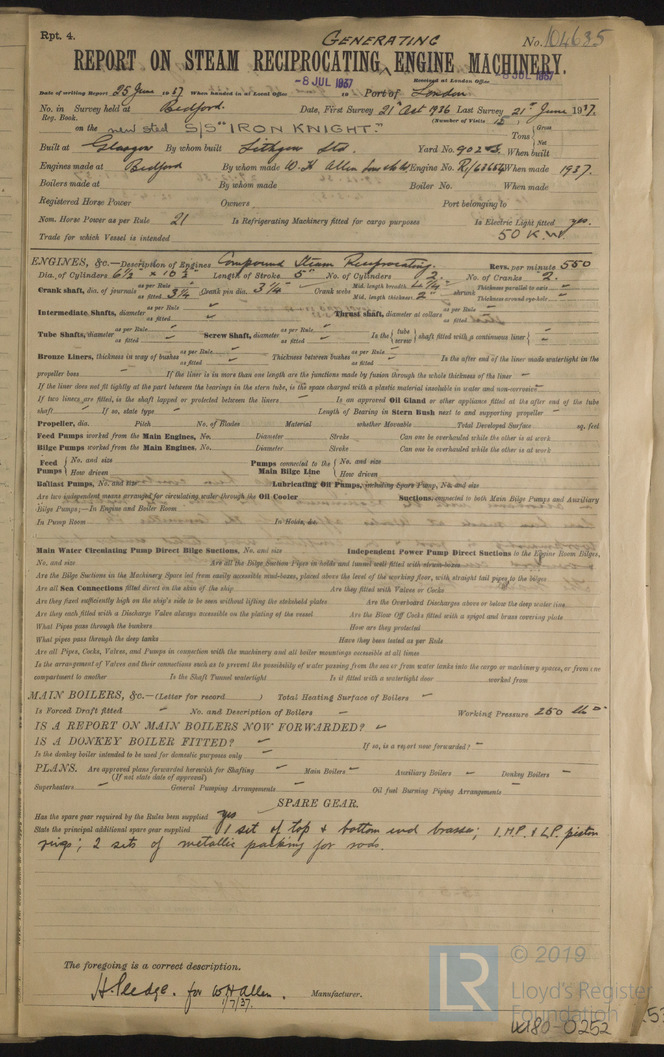 Rpt. 4.
GENERATING
No. 104635
REPORT ON STEAM RECIPROCATING ENGINE MACHINERY.
Received at London Office
-8 JUL 1937
-8 JUL 1937
Date of writing Report 25 June 1937 When handed in at Local Office 19 Port of London
No. in Survey held at Bedford. Date, First Survey 21st Oct 1936 Last Survey 21st June 1937.
Reg. Book. (Number of Visits 15)
on the new steel S/S "IRON KNIGHT." Tons { Gross Net
Built at Glasgow By whom built Lithgow Ltd. Yard No. When built
Engines made at Bedford By whom made W.H. Allen Sons & Co Ltd Engine No. R/1/63654 When made 1937.
Boilers made at By whom made Boiler No. When made
Registered Horse Power Owners Port belonging to
Nom. Horse Power as per Rule 21 Is Refrigerating Machinery fitted for cargo purposes Is Electric Light fitted yes.
Trade for which Vessel is intended 50 K.W.
ENGINES, &c.—Description of Engines Compound Steam Reciprocating. Revs. per minute 550
Dia. of Cylinders 6½" x 10½" Length of Stroke 5" No. of Cylinders 2. No. of Cranks 2.
Crank shaft, dia. of journals as per Rule as fitted 3¼" Crank pin dia. 3¼" Crank webs Mid. length breadth 4¼" Mid. length thickness 2" shrunk Thickness parallel to axis Thickness around eye-hole
Intermediate Shafts, diameter as per Rule as fitted Thrust shaft, diameter at collars as per Rule as fitted
Tube Shafts, diameter as per Rule as fitted Screw Shaft, diameter as per Rule as fitted Is the { tube screw } shaft fitted with a continuous liner {
Bronze Liners, thickness in way of bushes as per Rule as fitted Thickness between bushes as per Rule as fitted Is the after end of the liner made watertight in the
propeller boss If the liner is in more than one length are the junctions made by fusion through the whole thickness of the liner
If the liner does not fit tightly at the part between the bearings in the stern tube, is the space charged with a plastic material insoluble in water and non-corrosive
If two liners are fitted, is the shaft lapped or protected between the liners Is an approved Oil Gland or other appliance fitted at the after end of the tube
shaft If so, state type Length of Bearing in Stern Bush next to and supporting propeller
Propeller, dia. Pitch No. of Blades Material whether Moveable Total Developed Surface sq. feet
Feed Pumps worked from the Main Engines, No. Diameter Stroke Can one be overhauled while the other is at work
Bilge Pumps worked from the Main Engines, No. Diameter Stroke Can one be overhauled while the other is at work
Feed Pumps { No. and size How driven Pumps connected to the Main Bilge Line { No. and size How driven
Ballast Pumps, No. and size Lubricating Oil Pumps, including Spare Pump, No. and size
Are two independent means arranged for circulating water through the Oil Cooler Suctions, connected to both Main Bilge Pumps and Auxiliary
Bilge Pumps;—In Engine and Boiler Room
In Pump Room In Holds, &c.
Main Water Circulating Pump Direct Bilge Suctions, No. and size Independent Power Pump Direct Suctions to the Engine Room Bilges,
No. and size Are all the Bilge Suction Pipes in holds and tunnel well fitted with strum-boxes
Are the Bilge Suctions in the Machinery Space led from easily accessible mud-boxes, placed above the level of the working floor, with straight tail pipes to the bilges
Are all Sea Connections fitted direct on the skin of the ship Are they fitted with Valves or Cocks
Are they fixed sufficiently high on the ship's side to be seen without lifting the stokehold plates Are the Overboard Discharges above or below the deep water line
Are they each fitted with a Discharge Valve always accessible on the plating of the vessel Are the Blow Off Cocks fitted with a spigot and brass covering plate
What Pipes pass through the bunkers How are they protected
What pipes pass through the deep tanks Have they been tested as per Rule
Are all Pipes, Cocks, Valves, and Pumps in connection with the machinery and all boiler mountings accessible at all times
Is the arrangement of Valves and their connections such as to prevent the possibility of water passing from the sea or from water tanks into the cargo or machinery spaces, or from one
compartment to another Is the Shaft Tunnel watertight Is it fitted with a watertight door worked from
MAIN BOILERS, &c.—(Letter for record ) Total Heating Surface of Boilers
Is Forced Draft fitted No. and Description of Boilers Working Pressure 250 lbs
IS A REPORT ON MAIN BOILERS NOW FORWARDED?
IS A DONKEY BOILER FITTED? If so, is a report now forwarded?
Is the donkey boiler intended to be used for domestic purposes only
PLANS. Are approved plans forwarded herewith for Shafting Main Boilers Auxiliary Boilers Donkey Boilers
(If not state date of approval)
Superheaters General Pumping Arrangements Oil fuel Burning Piping Arrangements
SPARE GEAR.
Has the spare gear required by the Rules been supplied yes
State the principal additional spare gear supplied 1 set of top & bottom end brasses; 1 H.P. & L.P. piston
rings; 2 sets of metallic packing for rods.
The foregoing is a correct description.
H. Pledge. for W H Allen. Manufacturer.
1/7/37.
© 2019
LR
Lloyd's Register
Foundation
W180-0252